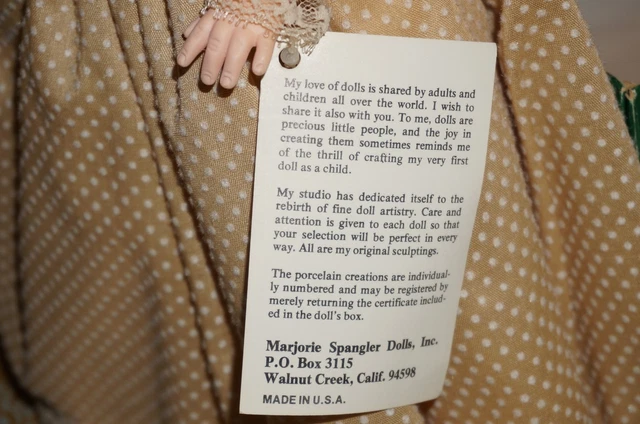 My love of dolls is shared by adults and
children all over the world. I wish to
share it also with you. To me, dolls are
precious little people, and the joy in
creating them sometimes reminds me
of the thrill of crafting my very first
doll as a child.
My studio has dedicated itself to the
rebirth of fine doll artistry. Care and
attention is given to each doll so that
your selection will be perfect in every
way. All are my original sculptings.
The porcelain creations are individual-
ly numbered and may be registered by
merely returning the certificate includ-
ed in the doll's box.
Marjorie Spangler Dolls, Inc.
P.O. Box 3115
Walnut Creek, Calif. 94598
MADE IN U.S.A.